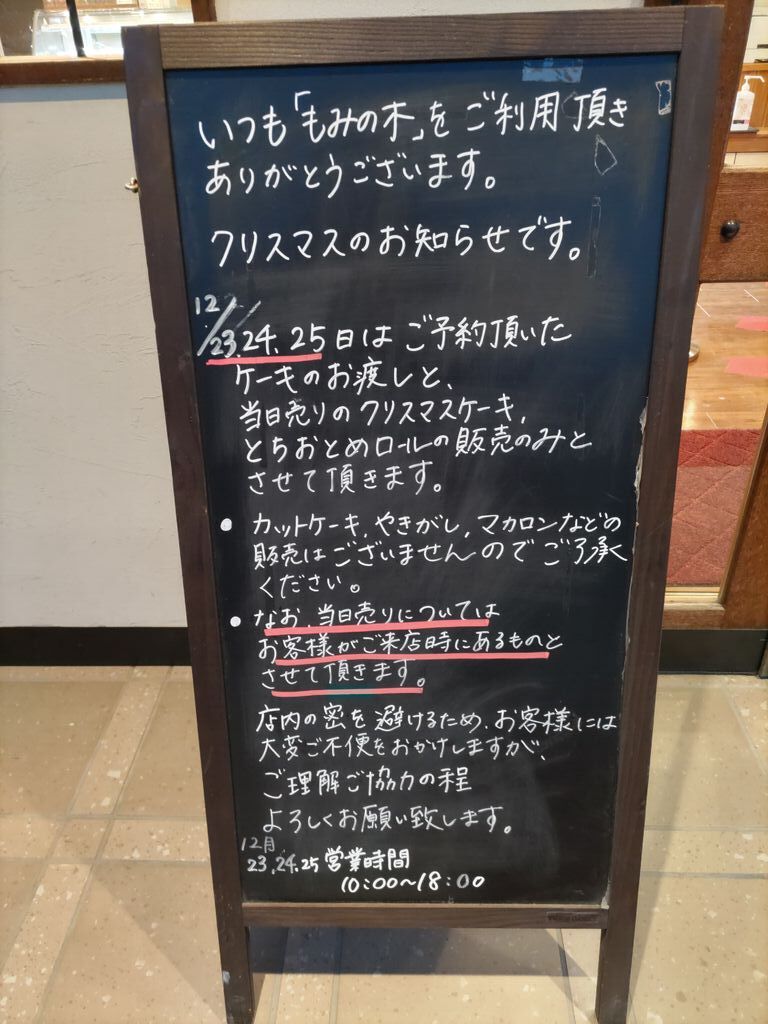 いつも「もみの木」をご利用頂き
ありがとうございます。
クリスマスのお知らせです。
12/23.24.25日はご予約頂いた
ケーキのお渡しと、
当日売りのクリスマスケーキ,
とちおとめロールの販売のみと
させて頂きます。
● カットケーキ,やきがし,マカロンなどの
販売はございませんのでご了承
ください。
● なお,当日売りについては
お客様がご来店時にあるものと
させて頂きます。
店内の密を避けるため,お客様には
大変ご不便をおかけしますが、
ご理解ご協力の程
よろしくお願い致します。
12月
23,24.25 営業時間
10:00〜18:00